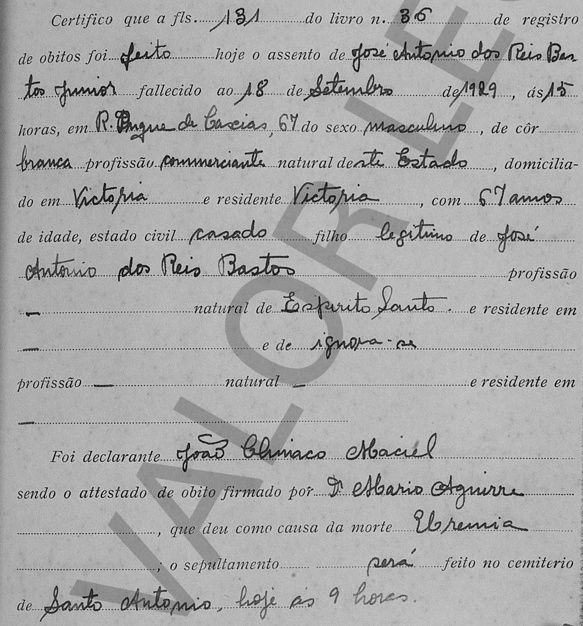 Certifico que a fls. 131 do livro n. 36 de registro
de obitos foi feito hoje o assento de José Antonio dos Reis Bas-
tos Junior fallecido ao 18 de Setembro de 1929, ás 15
horas, em R. Duque de Caxias, 67 do sexo masculino, de côr
branca profissão commerciante natural deste Estado, domicilia-
do em Victoria e residente Victoria, com 67 annos
de idade, estado civil casado filho legitimo de José
Antonio dos Reis Bastos profissão
— natural de Espirito Santo. e residente em
— e de ignora-se
profissão — natural — e residente em
—
Foi declarante João Climaco Maciel
sendo o attestado de obito firmado por Dr Mario Aguirre
, que deu como causa da morte Uremia
; o sepultamento será feito no cemiterio
de Santo Antonio, hoje ás 9 horas.
VALOR LE